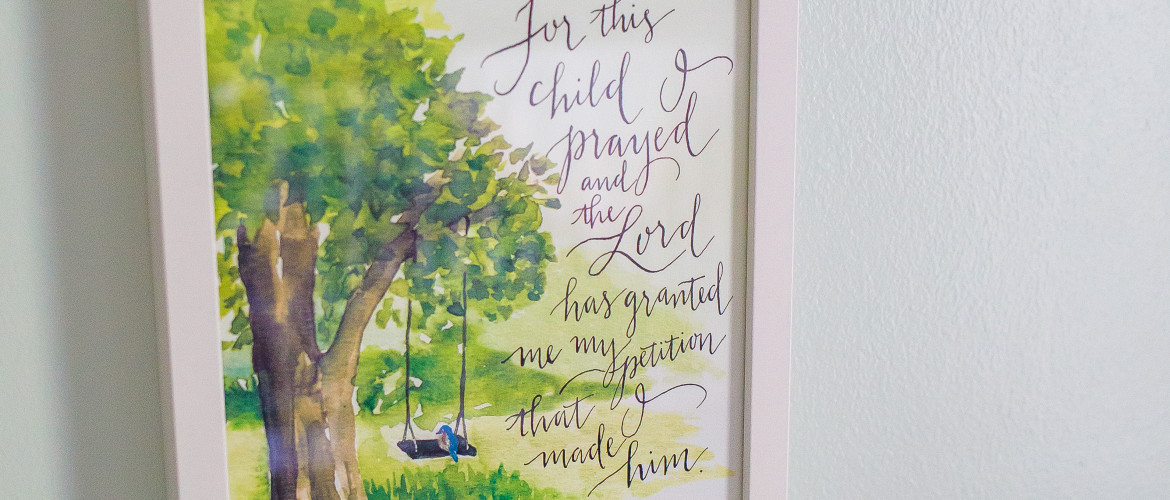 For this
child I
prayed
and
the
Lord
has granted
me my petition
that I
made
him.